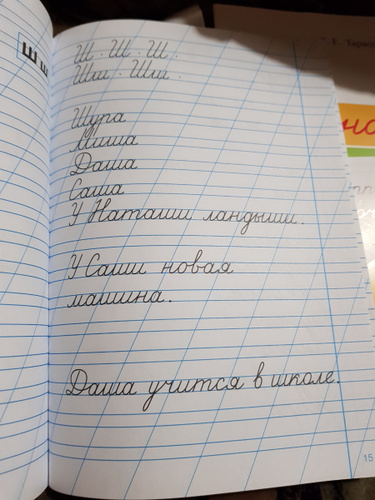 Ш ш
Ш · Ш · Ш ·
Шш · Шш ·
Шура
Миша
Даша
Саша
У Наташи ландыши.
У Саши новая
машина.
Даша учится в школе.
15